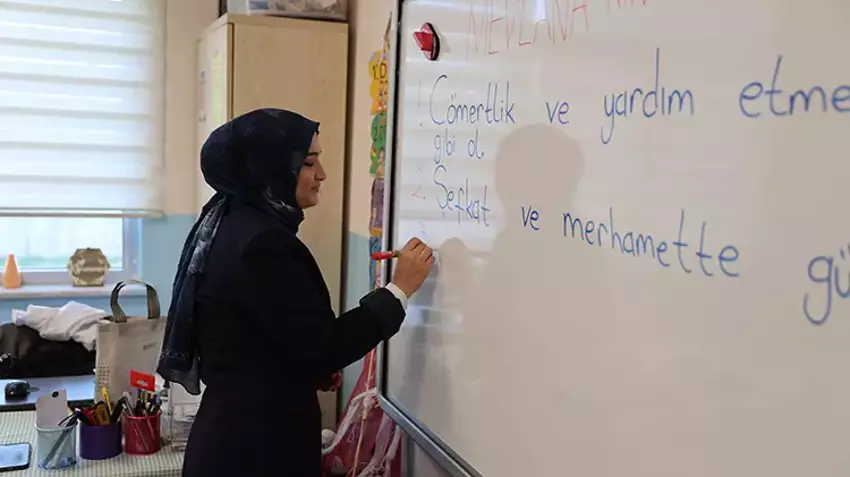 MEVLANA'NIN
1. Cömertlik ve yardım etme
gibi ol.
2. Şefkat ve merhamette gü
3.